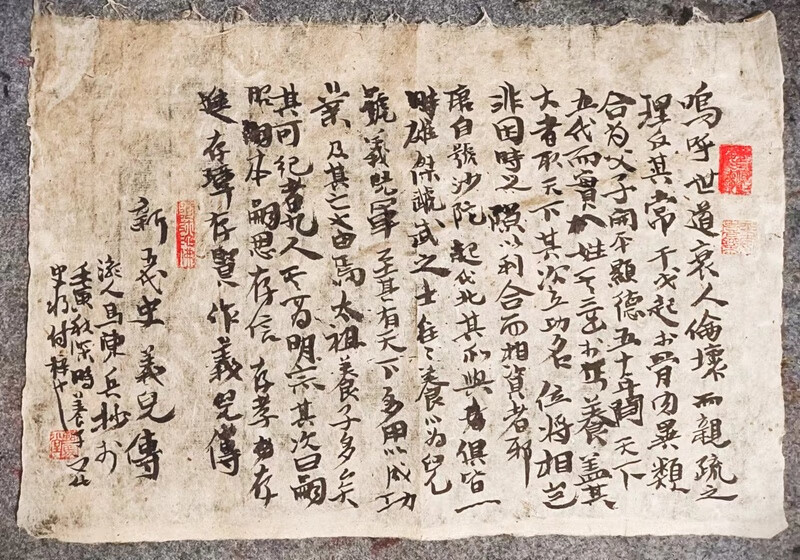 嗚呼世道衰人倫壞而親疏之
理反其常干戈起於骨肉異類
合為父子開平顯德五十年間天下
五代而實八姓其三出於丐養蓋其
大者取天下其次立功名位將相豈
非因時之隙以利合而相資者邪
唐自號沙陀起代北其所與俱皆一
時雄傑虣武之士往々養以為兒
號義兒軍至其有天下多用以成功
業及其亡也由焉太祖養子多矣
其可紀者九人其一為明宗其次曰嗣
昭嗣本嗣恩存信存孝存
進存璋存賢作義兒傳
新五代史義兒傳
人馬陳兵抄於
壬寅秋深時養